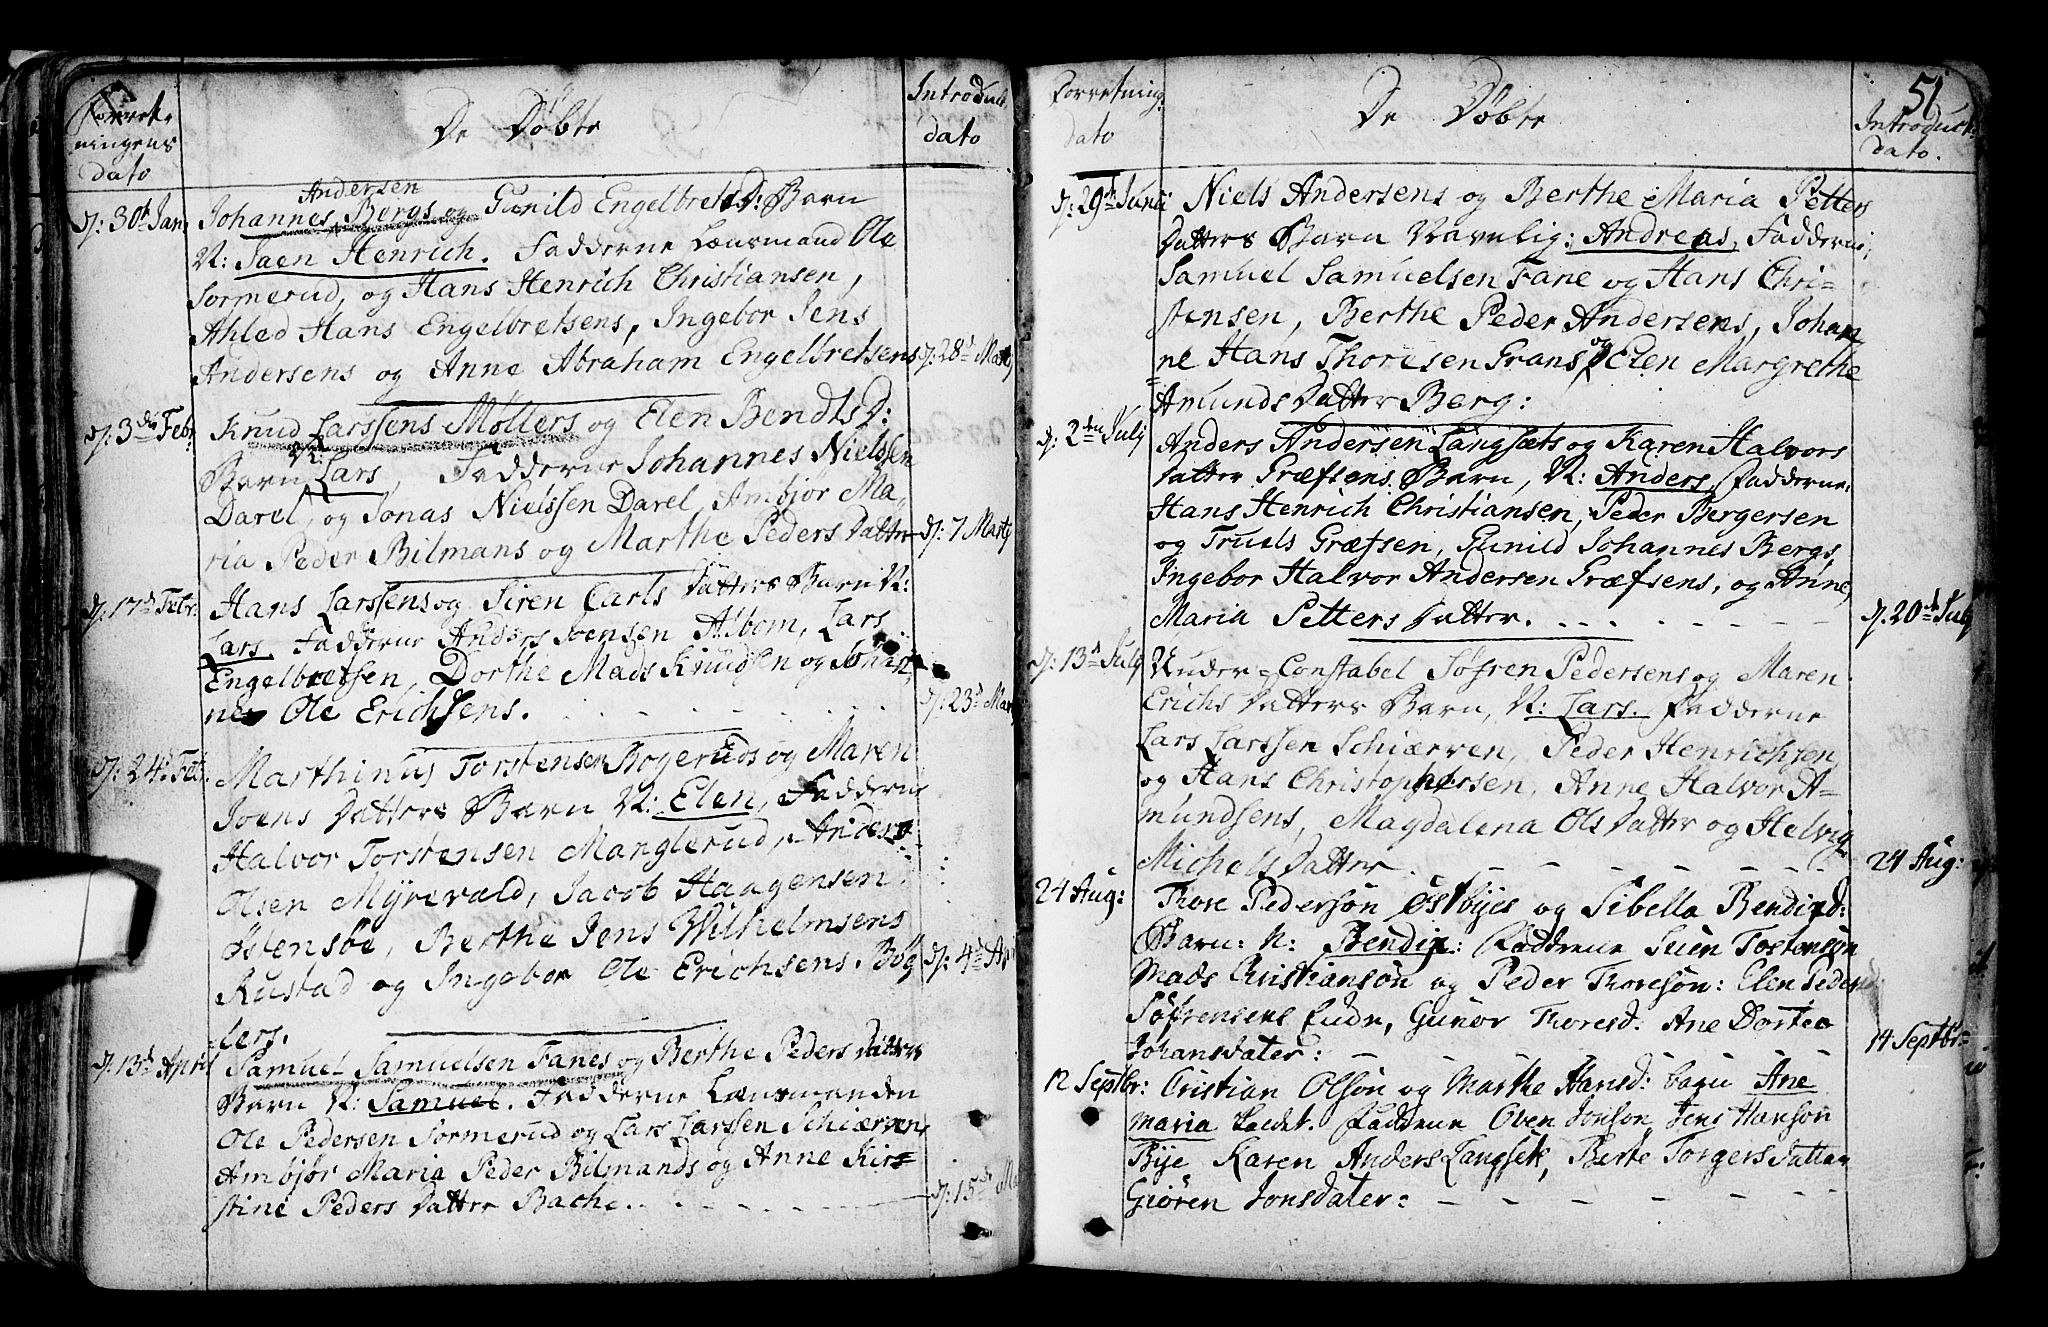 Forret-
ningens
dato
De Døbte
Introduct.
dato
d: 30t Jan.
Andersen
Johannes Bergs og Gunild EngelbretsD: Barn
N: Jaen Henrich. Fadderne Lensmand Ole
Sormerud, og Hans Henrich Christiansen,
Ahled Hans Engelbretsens, Ingebor Jens
Andersens og Anne Abraham Engelbretsens
d: 28d
d: 3die Febr.
Knud Larssens Møllers og Elen BendtsD:
Barn N: Lars, Fadderne Johannes Nielssen
Darel, og Jonas Nielssen Darel, Ambjør Ma-
ria Peder Bilmans og Marthe Peders Datter
d: 7 Marty
d: 17d Febr.
Hans Larssens og Siren Carls Datters Barn N:
Lars. Fadderne Anders Joensen Albom, Lars
Engelbretsen, Dorthe Mads Knudsen og Johan-
ne Ole Erichsens.
d: 23d Mar
d: 24d Febr.
Marthinus Torstensen Bogeruds og Maren
Joens Datters Barn N: Elen, Fadderne
Halvor Torstensen Manglerud, Anders
Olsen Myrevald, Jacob Haagensen
Østensøe, Berthe Jens Wilhelmsens
Rustad og Ingebor Ole Erichsens Bøg-
lers.
d: 4d Ap
d: 13d April
Samuel Samuelsen Fanes og Berthe Peders Datters
Barn N: Samuel. Fadderne Lensmanden
Ole Pedersen Sormerud og Lars Larssen Schiærven,
Ambjør Maria Peder Bilmands og Anne Kir-
stine Peders Datter Bache.
d: 15d Ma
51
Forretning:
dato
De Døbte
Introduct.
dato.
d: 29d Juni
Niels Andersens og Berthe Maria Petters
Datters Barn Navnlig: Andreas, Fadderne,
Samuel Samuelsen Fane og Hans Chri-
stensen, Berthe Peder Andersens, Johan-
ne Hans Thoresen Grans og Elen Margrethe
Amunds Datter Berg:
d: 2den July
Anders Andersen Langsæts og Karen Halvors
Datter Græfsens Barn, N: Anders, Fadderne:
Hans Henrich Christiansen, Peder Bergersen
og Truels Græfsen, Gunild Johannes Bergs
Ingebor Halvor Andersen Græfsens, og Anne
Maria Petters Datter.
d: 20de July
d: 13d July
Under-Constabel Søfren Pedersens og Maren
Erichs Datters Barn, N: Lars. Fadderne
Lars Larssen Schiærven, Peder Henrichsen
og Hans Christophersen, Anne Halvor A-
mundsens, Magdalena Ols Datter og Helvig
Michels Datter.
24 Aug:
24 Aug:
Thore Pedersøn Østbyes og Sibella Bendixd:
Barn: N: Bendix: Faddrene Sven Tostensøn
Mads Christiansøn og Peder Thoresøn: Elen Peder
Søfrensens Eude, Gunor Thoresd: Ane Dortea
Johansdater:
14 Septbr
12 Septbr:
Cristian Olsøn og Marthe Hansd: barn Ane
maria kaldet. Faddrene Oven Jonsøn, Jens Hansøn
Bye Karen Anders Langsek, Berte Torgers datter
Giøren Jonsdater: